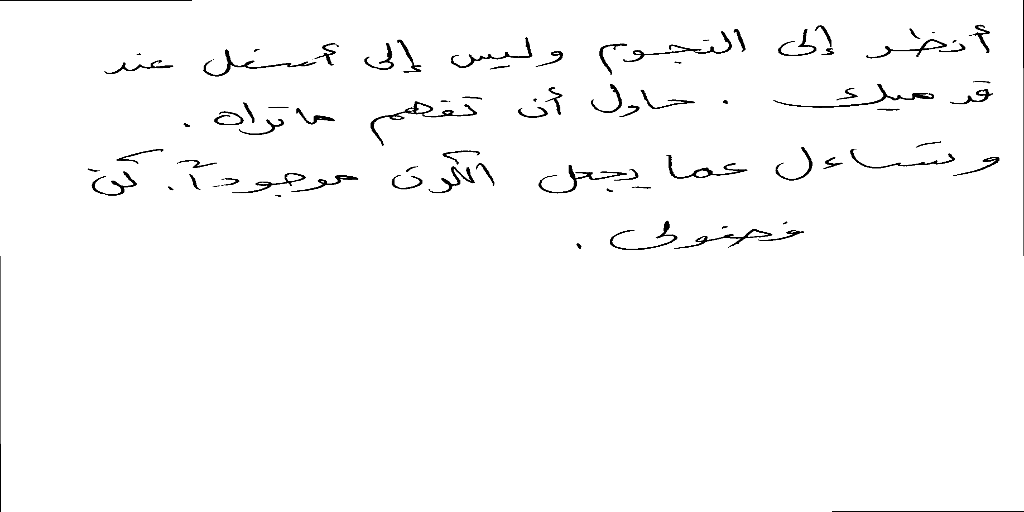 أنظر إلى النجوم وليس إلى أسفل عند
قدميك . حاول أن تفهم ماتراه .
وتساءل عما يجعل الكون موجوداً . كن
فضولى .